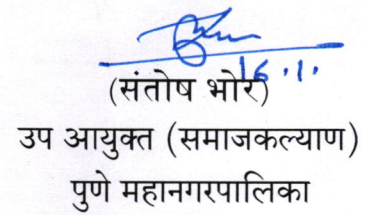 16.1.
(संतोष भोर)
उप आयुक्त (समाजकल्याण)
पुणे महानगरपालिका